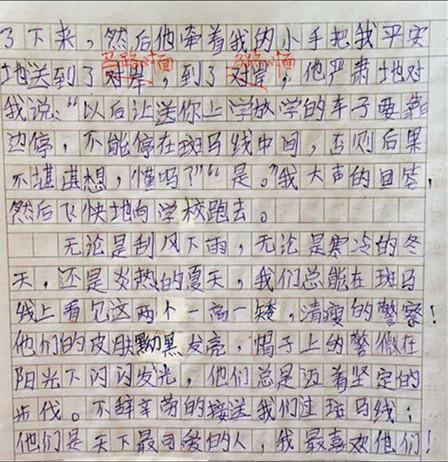 了下来，然后他牵着我的小手把我平安
马路对面 马路对面
地送到了对岸，到了对岸，他严肃地对
我说：“以后让送你上学放学的车子要靠
边停，不能停在斑马线中间，否则后果
不堪想，懂吗？”“是。”我大声的回答，
然后飞快地向学校跑去。
无论是刮风下雨，无论是寒冷的冬
天，还是炎热的夏天，我们总能在斑马
线上看见这两个一高一矮，清瘦的警察！
他们的皮肤黝黑发亮，帽子上的警徽在
阳光下闪闪发光，他们总是迈着坚定的
步伐。不辞辛劳的接送我们过斑马线；
他们是天下最可爱的人，我最喜欢他们！